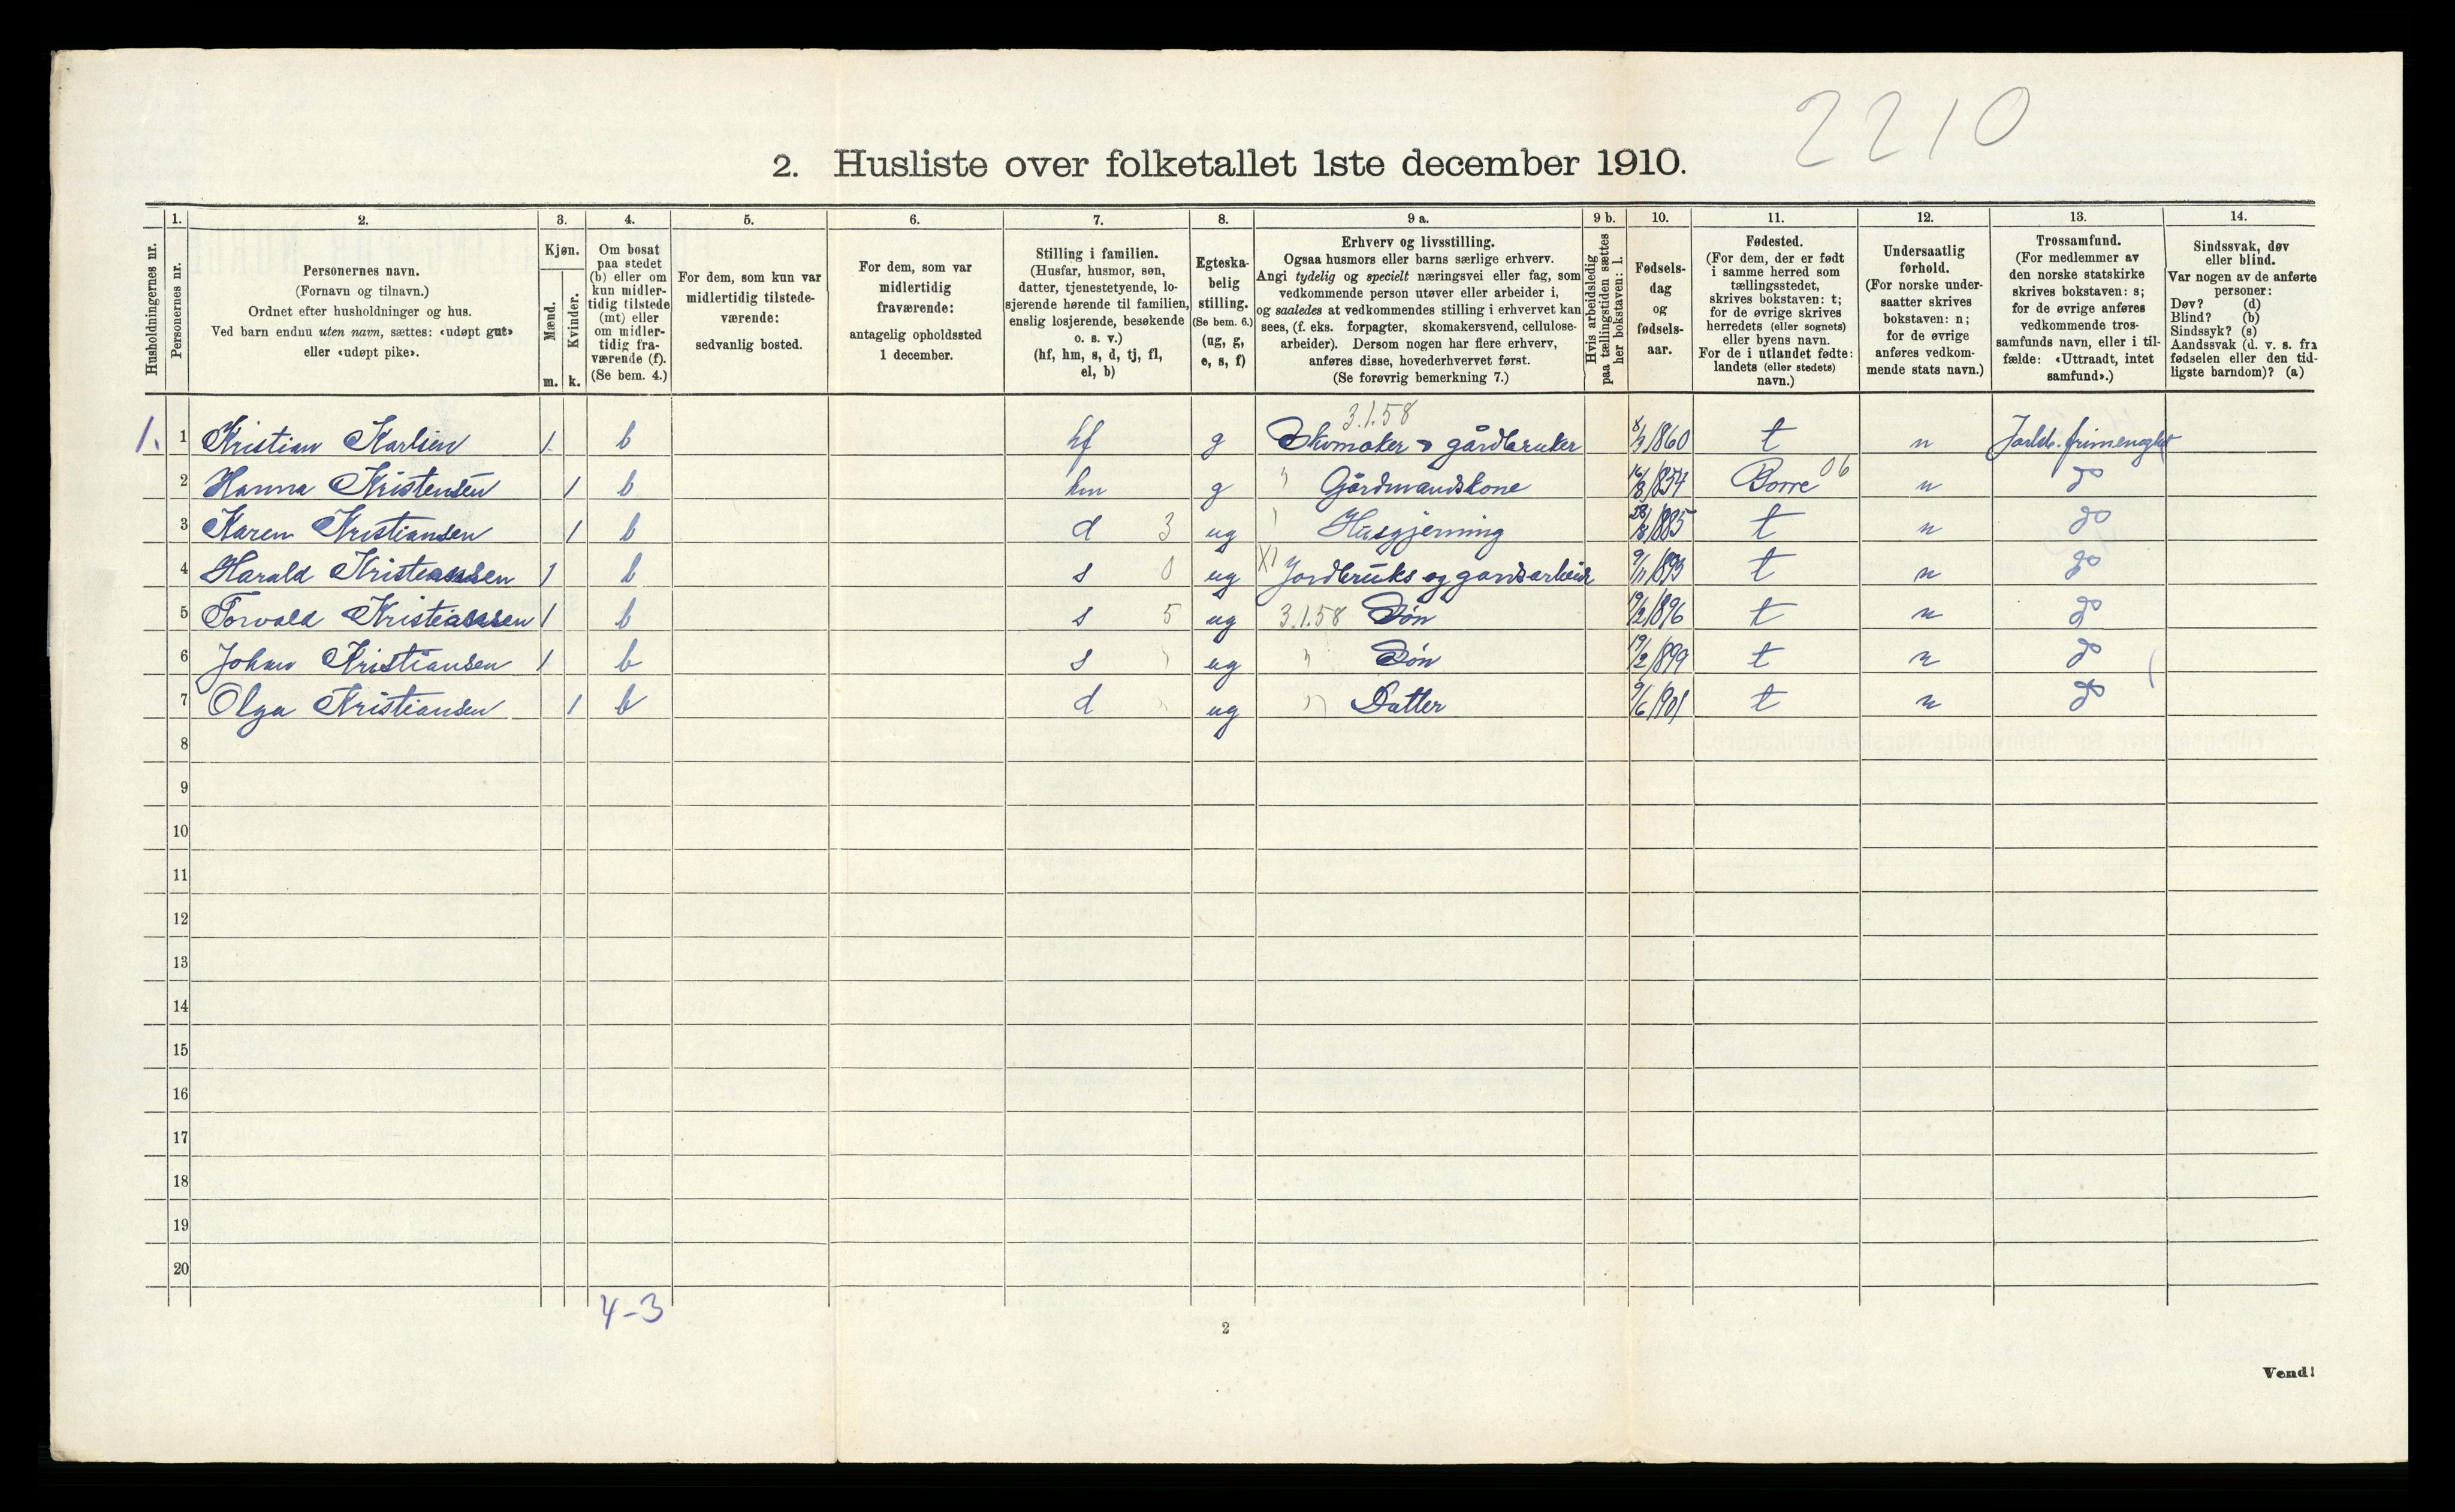 2210
2. Husliste over folketallet 1ste december 1910.
Husholdningernes nr.
1.
Personernes nr.
2.
Personernes navn.
(Fornavn og tilnavn.)
Ordnet efter husholdninger og hus.
Ved barn endnu uten navn, sættes: «udøpt gut»
eller «udøpt pike».
3.
Kjøn.
Mænd.
Kvinder.
m. k.
4.
Om bosat
paa stedet
(b) eller om
kun midler-
tidig tilstede
(mt) eller
om midler-
tidig fra-
værende (f).
(Se bem. 4.)
5.
For dem, som kun var
midlertidig tilstede-
værende:
sedvanlig bosted.
6.
For dem, som var
midlertidig
fraværende:
antagelig opholdssted
1 december.
7.
Stilling i familien.
(Husfar, husmor, søn,
datter, tjenestetyende, lo-
sjerende hørende til familien,
enslig losjerende, besøkende
o. s. v.)
(hf, hm, s, d, tj, fl,
el, b)
8.
Egteska-
belig
stilling.
(Se bem. 6.)
(ug, g,
e, s, f)
9 a.
Erhverv og livsstilling.
Ogsaa husmors eller barns særlige erhverv.
Angi tydelig og specielt næringsvei eller fag, som
vedkommende person utøver eller arbeider i,
og saaledes at vedkommendes stilling i erhvervet kan
sees, (f. eks. forpagter, skomakersvend, cellulose-
arbeider). Dersom nogen har flere erhverv,
anføres disse, hovederhvervet først.
(Se forøvrig bemerkning 7.)
9 b.
Hvis arbeidsledig
paa tællingstiden sættes
her bokstaven: l.
10.
Fødsels-
dag
og
fødsels-
aar.
11.
Fødested.
(For dem, der er født
i samme herred som
tællingsstedet,
skrives bokstaven: t;
for de øvrige skrives
herredets (eller sognets)
eller byens navn.
For de i utlandet fødte:
landets (eller stedets)
navn.)
12.
Undersaatlig
forhold.
(For norske under-
saatter skrives
bokstaven: n;
for de øvrige
anføres vedkom-
mende stats navn.)
13.
Trossamfund.
(For medlemmer av
den norske statskirke
skrives bokstaven: s;
for de øvrige anføres
vedkommende tros-
samfunds navn, eller i til-
fælde: «Uttraadt, intet
samfund».)
14.
Sindssvak, døv
eller blind.
Var nogen av de anførte
personer:
Døv? (d)
Blind? (b)
Sindssyk? (s)
Aandssvak (d. v. s. fra
fødselen eller den tid-
ligste barndom)? (a)
3.1.58
1. 1 Kristian Karlsen 1 b hf g Skomaker &amp; gårdbruker 1860 t n Jarlsb. frimeneght
2 Hanna Kristensen 1 b hm g " Gårdmandskone 16/8 1854 Borre 06 n do
3 Karen Kristiansen 1 b d 3 ug " Husgjerning 1885 t n do
4 Harald Kristiansen 1 b s 0 ug X1 Jordbruks og gardsarbeide 9/11 1893 t n do
5 Torvald Kristiansen 1 b s 5 ug 3.1.58 Søn 19/2 1896 t n do
6 Johan Kristiansen 1 b s " ug " Søn 19/2 1899 t n do
7 Olga Kristiansen 1 b d " ug " Datter 9/6 1901 t n do
8
9
10
11
12
13
14
15
16
17
18
19
20
4-3
2
Vend!